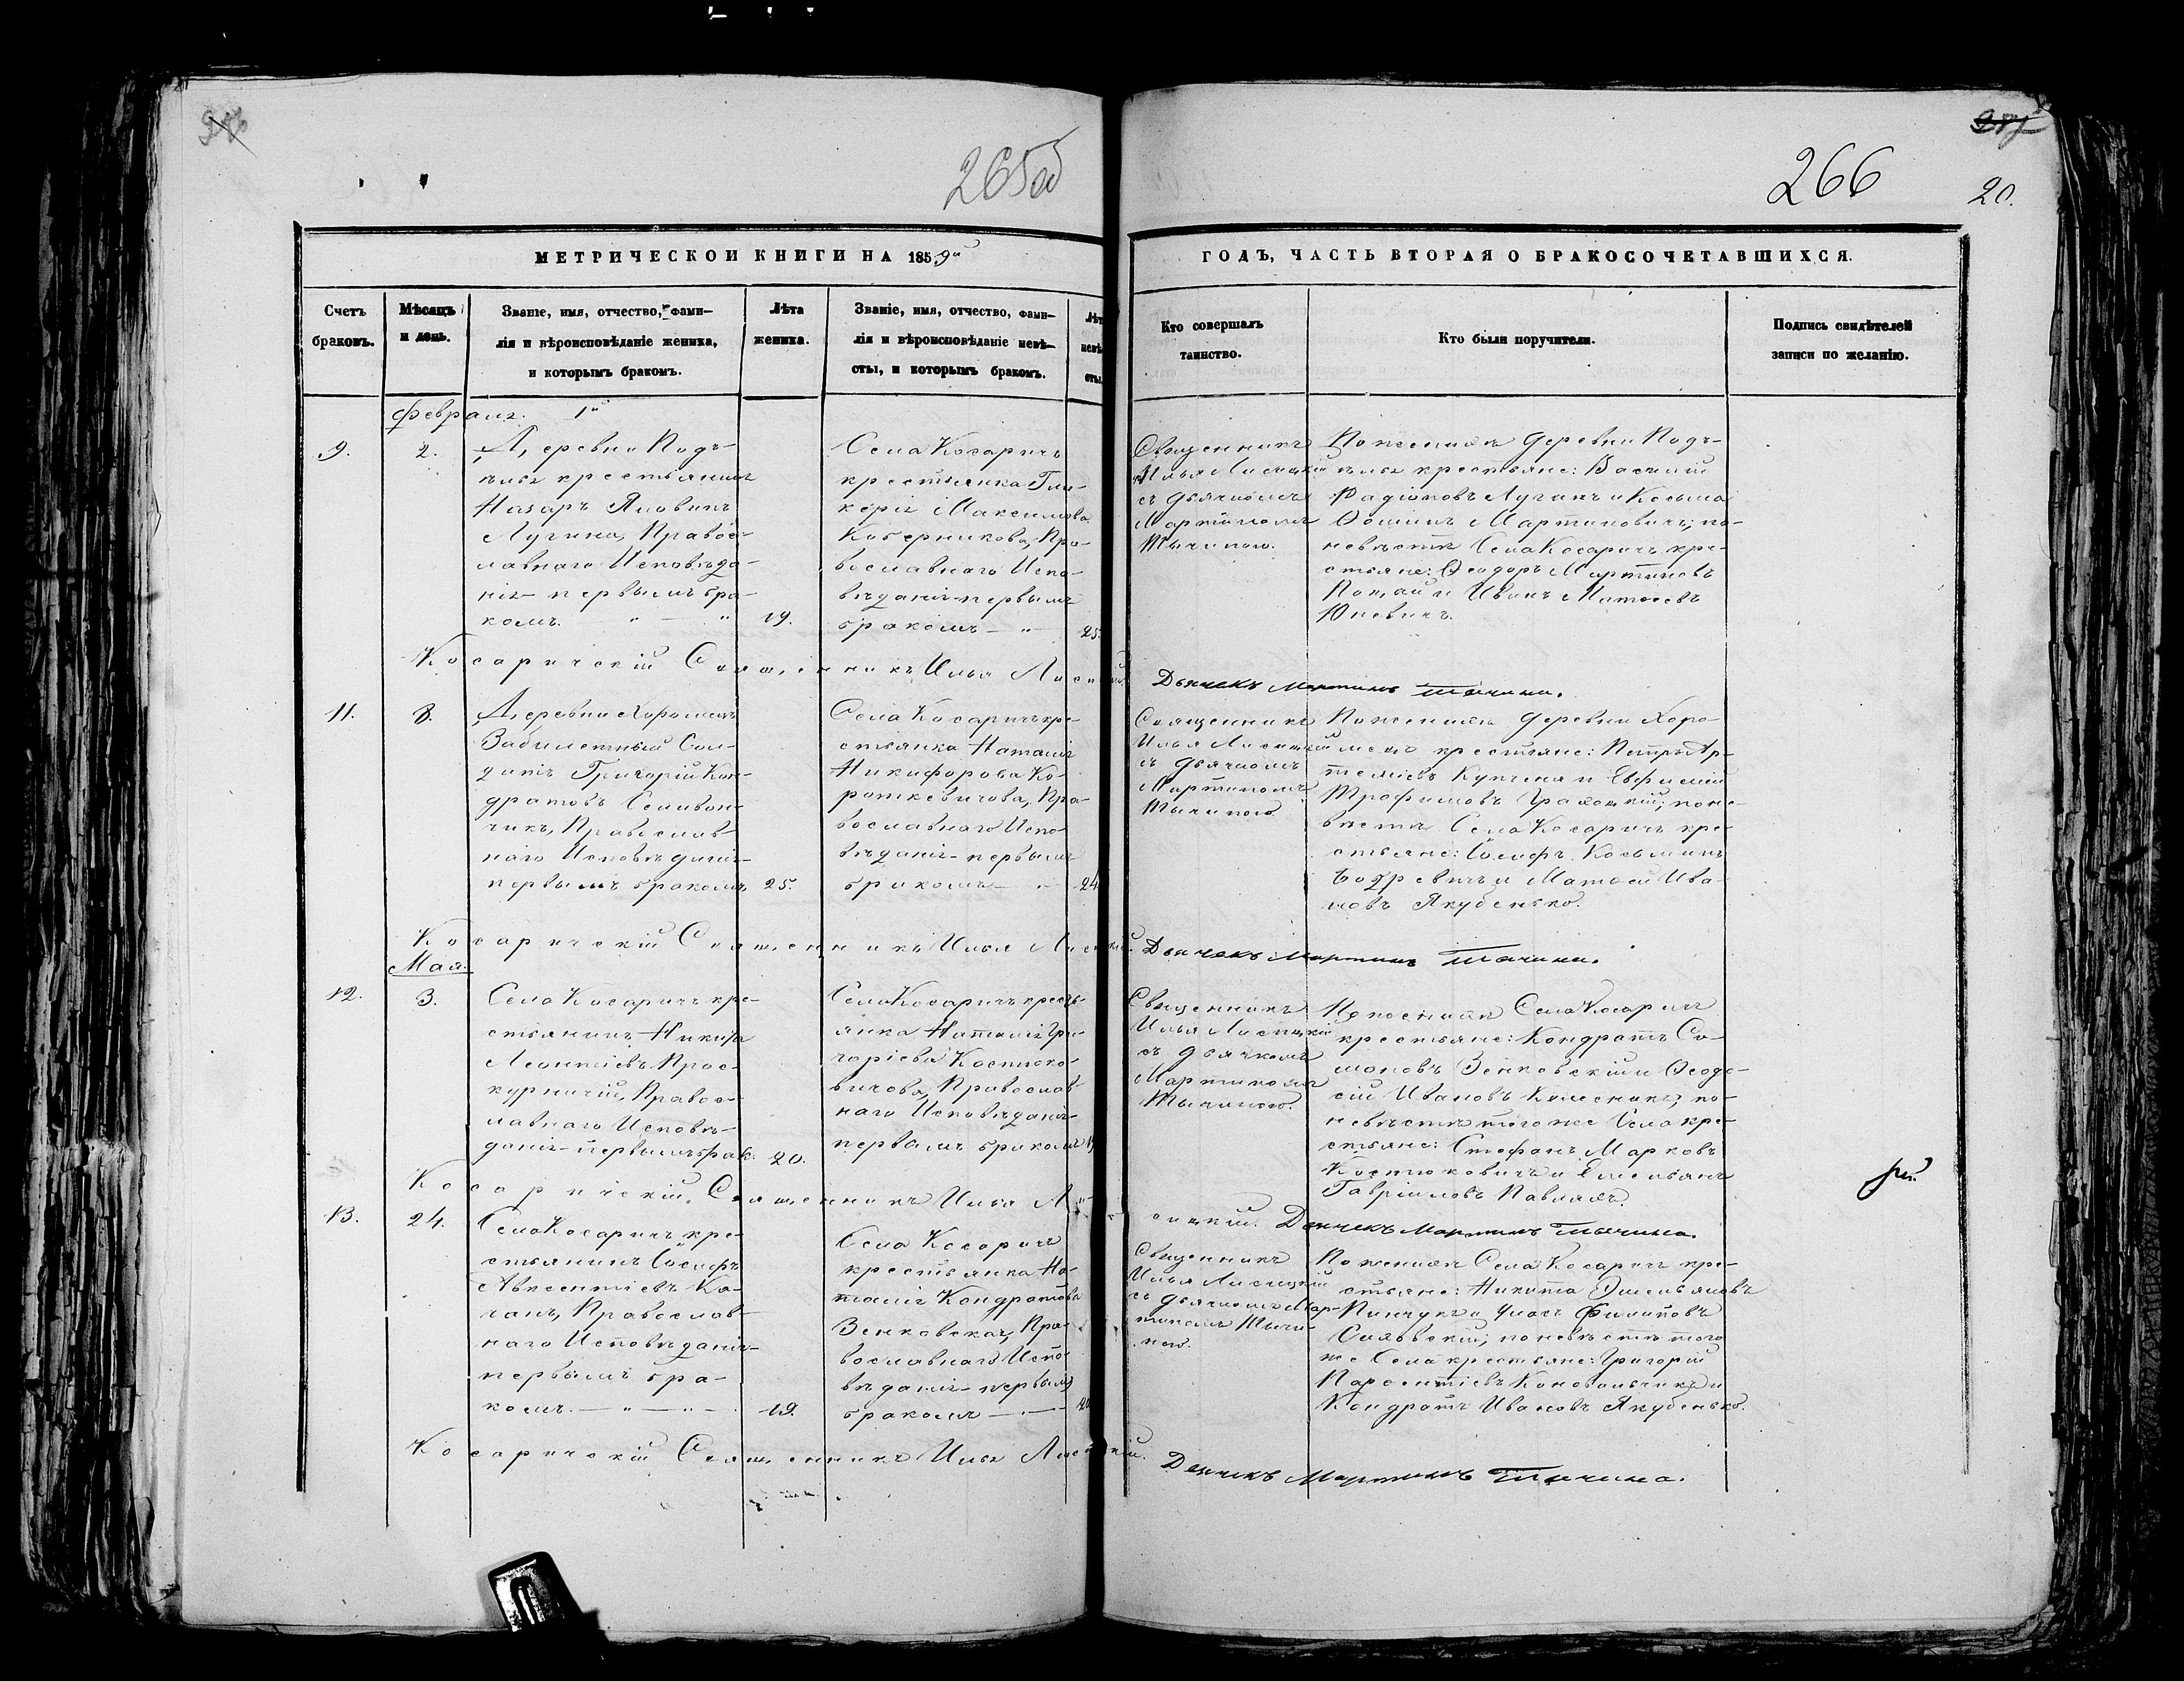 265об
266
20.
МЕТРИЧЕСКОЙ КНИГИ НА 1859й
ГОДЪ, ЧАСТЬ ВТОРАЯ О БРАКОСОЧЕТАВШИХСЯ.
Счетъ
браковъ.
Мѣсяцъ
и день.
Званіе, имя, отчество, фами-
лія и вѣроисповѣданіе жениха,
и которымъ бракомъ.
Лѣта
жениха.
Званіе, имя, отчество, фами-
лія и вѣроисповѣданіе невѣ-
сты, и которымъ бракомъ.
Лѣт
невѣ
сты.
Кто совершалъ
таинство.
Кто были поручители.
Подпись свидѣтелей
записи по желанію.
Февраля.
9.
2.
Деревни Подъ-
ельѣ крестьянинъ
Назаръ
Лучина, Правос-
лавнаго Исповѣда-
нія первымъ бра-
комъ.
19.
Села Косаричъ
крестьянка Гли-
керія Максимова
Коберникова, Пра-
вославнаго Испо-
вѣданія первымъ
бракомъ
25.
Священникъ
Илья Лисицкій
съ дьячкомъ
Мартиномъ
Тычиною.
По женихѣ деревни Подъ-
ельѣ крестьяне: Василій
Радіоновъ Лучина и Косьма
Ѳоминъ Мартиновичъ; по
невѣстѣ Села Косаричъ кре-
стьяне: Ѳеодоръ Мартиновъ
и Иванъ Матвеевъ
Юневичъ.
Косаричскій Священникъ Илья Лисицкій.
Дьячекъ Мартинъ Тычина.
11.
8.
Деревни Хоромецъ
Забилетный Сол-
датъ Григорій Кон-
дратовъ Селивон-
чикъ, Православ-
наго Исповѣданія
первымъ бракомъ
25.
Села Косаричъ кре-
стьянка Наталія
Никифорова Ко-
роткевичова, Пра-
вославнаго Испо-
вѣданія первымъ
бракомъ
24
Священникъ
Илья Лисицкій
съ дьячкомъ
Мартиномъ
Тычиною
По женихѣ деревни Хоро-
мецъ крестьяне: Петръ Ар-
темьевъ Купченя и Евфимій
Трофимовъ; по не-
вѣстѣ Села Косаричъ кре-
стьяне: Іосифъ Козьминъ
Бодревичъ и Матвей Ива-
новъ Якубенько.
Косаричскій Священникъ Илья Лисицкій.
Дьячекъ Мартинъ Тычина.
Мая.
12.
3.
Села Косаричъ кре-
стьянинъ Никита
Леонтіевъ Прос-
курничій, Правос-
лавнаго Исповѣ-
данія первымъ брак.
20.
Села Косаричъ кресть-
янка Наталія Гри-
горіева Костюко-
вичова, Православ-
наго Исповѣданія
первымъ бракомъ
Священникъ
Илья Лисицкій
съ дьячкомъ
Мартиномъ
Тычиною.
По женихѣ Села Косаричъ
крестьяне: Кондратъ Си-
моновъ Зенковскій и Ѳеодо-
сій Ивановъ Колесникъ; по
невѣстѣ того же Села кре-
стьяне: Стефанъ Марковъ
Костюковичъ и Емельянъ
Гавріиловъ Павлюкъ.
Косаричскій Священникъ Илья Ли-
сицкій. Дьячекъ Мартинъ Тычина.
13.
24.
Села Косаричъ кре-
стьянинъ Іосифъ
Авксентіевъ Ка-
чанъ, Православ-
наго Исповѣданія
первымъ бра-
комъ.
19.
Села Косаричъ
крестьянка На-
талія Кондратова
Зенковская, Пра-
вославнаго Испо-
вѣданія первымъ
бракомъ
Священникъ
Илья Лисицкій
съ дьячкомъ Мар-
тиномъ Тычи-
ною.
По женихѣ Села Косаричъ кре-
стьяне: Никита Эмельяновъ
Пинчукъ и Уласъ Филиповъ
; по невѣстѣ того
же Села крестьяне: Григорій
Парѳентіевъ Коновальчикъ и
Кондратъ Ивановъ Якубенько.
Косаричскій Священникъ Илья Лисицкій.
Дьячекъ Мартинъ Тычина.